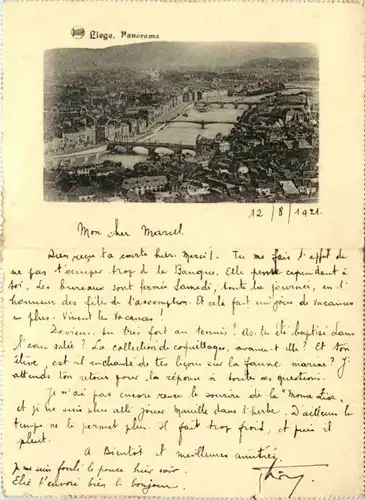 Liege. Panorama
12/8/1921.
Mon cher Marcel.
Bien reçu ta carte hier. Merci! Tu me fais l'effet de
ne pas t'occuper trop de la Banque. Elle pense cependant à
toi. Les bureaux sont fermés Samedi, toute la journée, en l'
honneur des fêtes de l'assomption. Et cela fait un jour de vacances
en plus. Vivent les vacances!
Deviens-tu très fort au tennis? As-tu été baptisé dans
l'eau salée? La collection de coquillages, avance-t-elle? Et ton
élève, est-il enchanté de tes leçons sur la faune marine? J'
attends ton retour pour la réponse à toutes ces questions.
Je n'ai pas encore revu le sourire de la "Mona Lisa"
et je ne suis plus allé jouer dans l'herbe. D'ailleurs le
temps ne le permet plus. Il fait trop froid, et puis il
pleut.
A Bientôt et meilleures amitiés.
Je me suis foulé le pouce hier soir.
Elle t'envoie bien le bonjour.